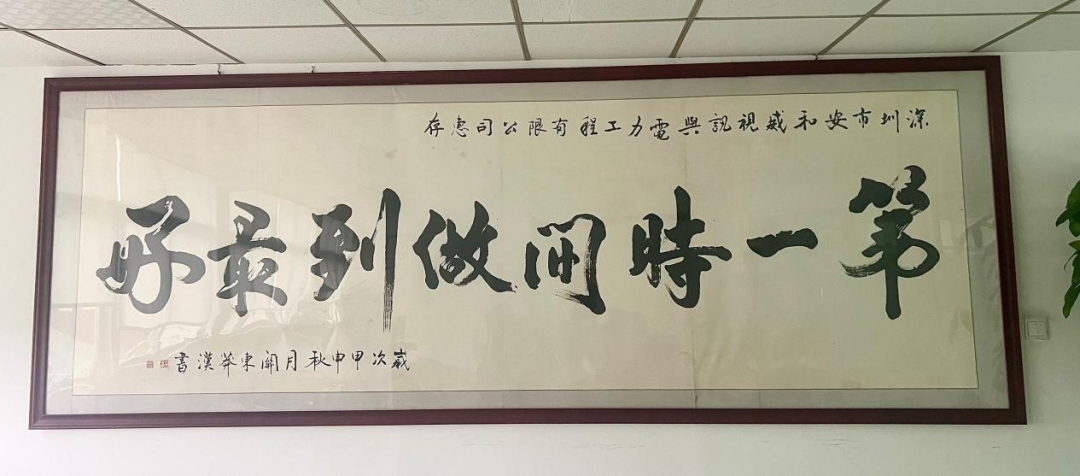 深圳市安和威視訊與電力工程有限公司惠存
第一時間做到最好
歲次甲申秋月關東莽漢書